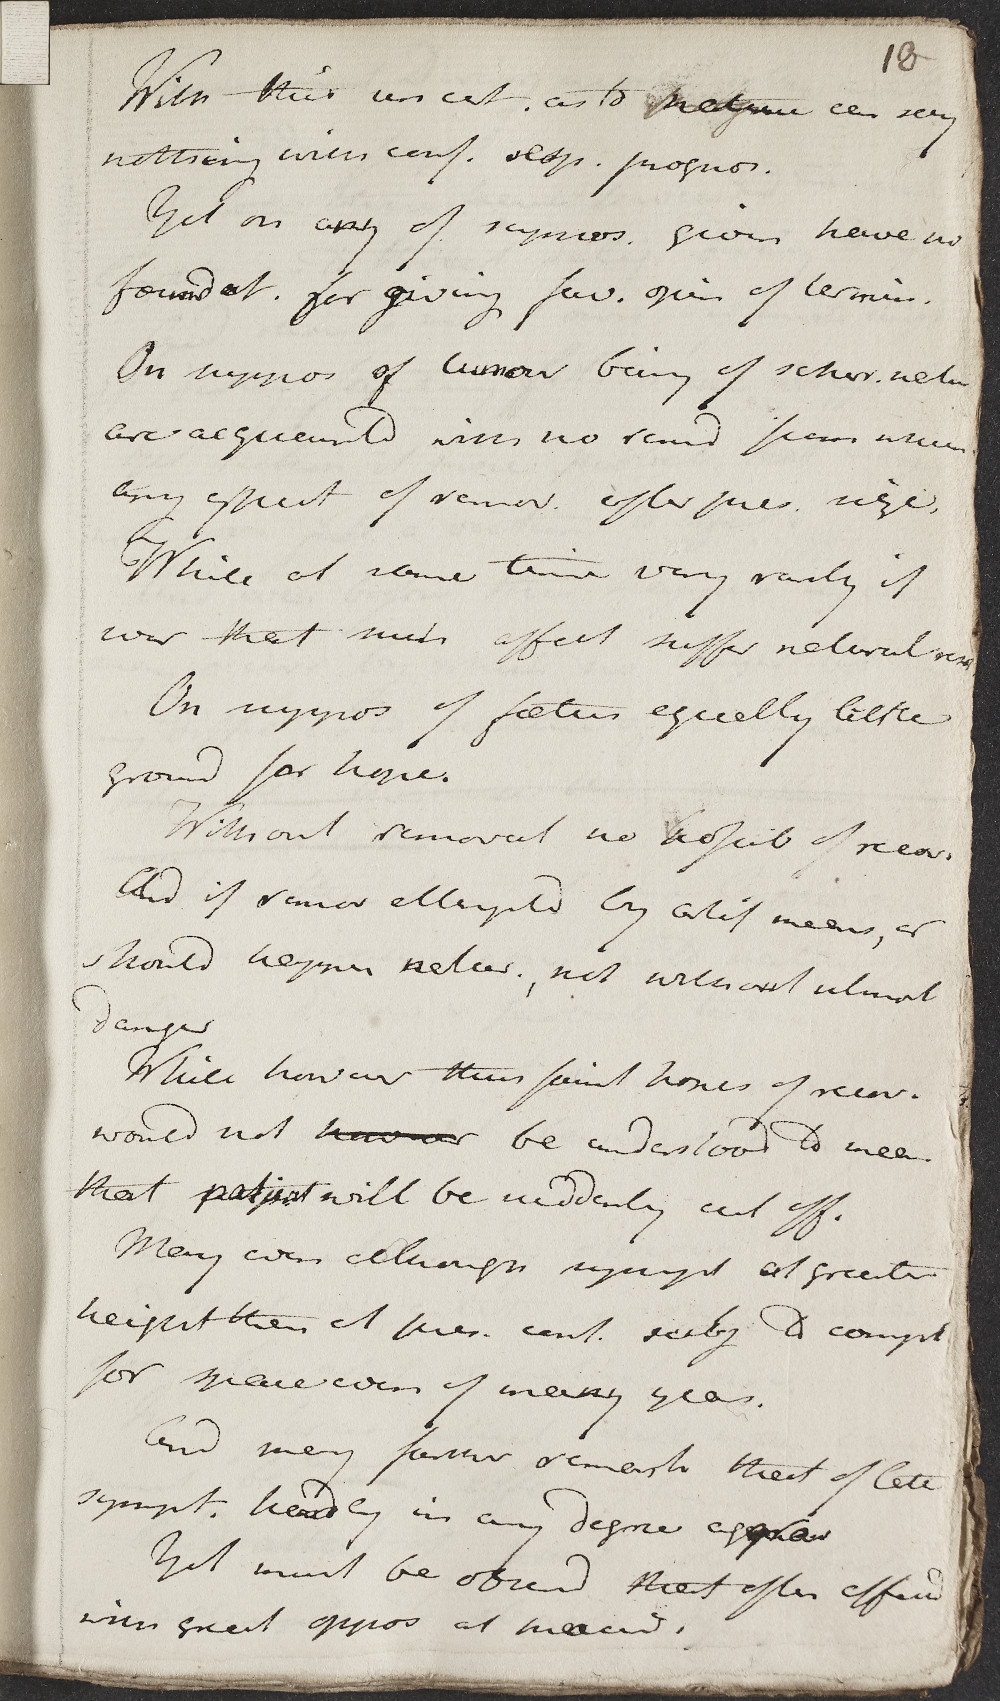 18
With this uncert. as to nature can say
nothing with conf. resp. prognos.
Yet on any of suppos. given have no
foundat. for giving fav. opin of termin.
On suppos of tumour being of schir. natu
are acquainted with no remed from whicn
any effect of remov. after pres. size.
While at same time very rarely if
ever that such affect suffer natural reso
On suppos of foetus equally little
ground for hope.
Without removal no possib of recov.
And if remov attempted by artif means, or
should happen natur., not without utmost
danger
While however thus faint hopes of recov.
would not however be understood to mean
that patient will be suddenly cut off.
Many even although sympt at greater
height than at pres. cont. to compl
for space even of many years.
And may farther remark that of late
sympt. hardly in any degree aggrav
Yet must be observd that often affected
with great oppos at